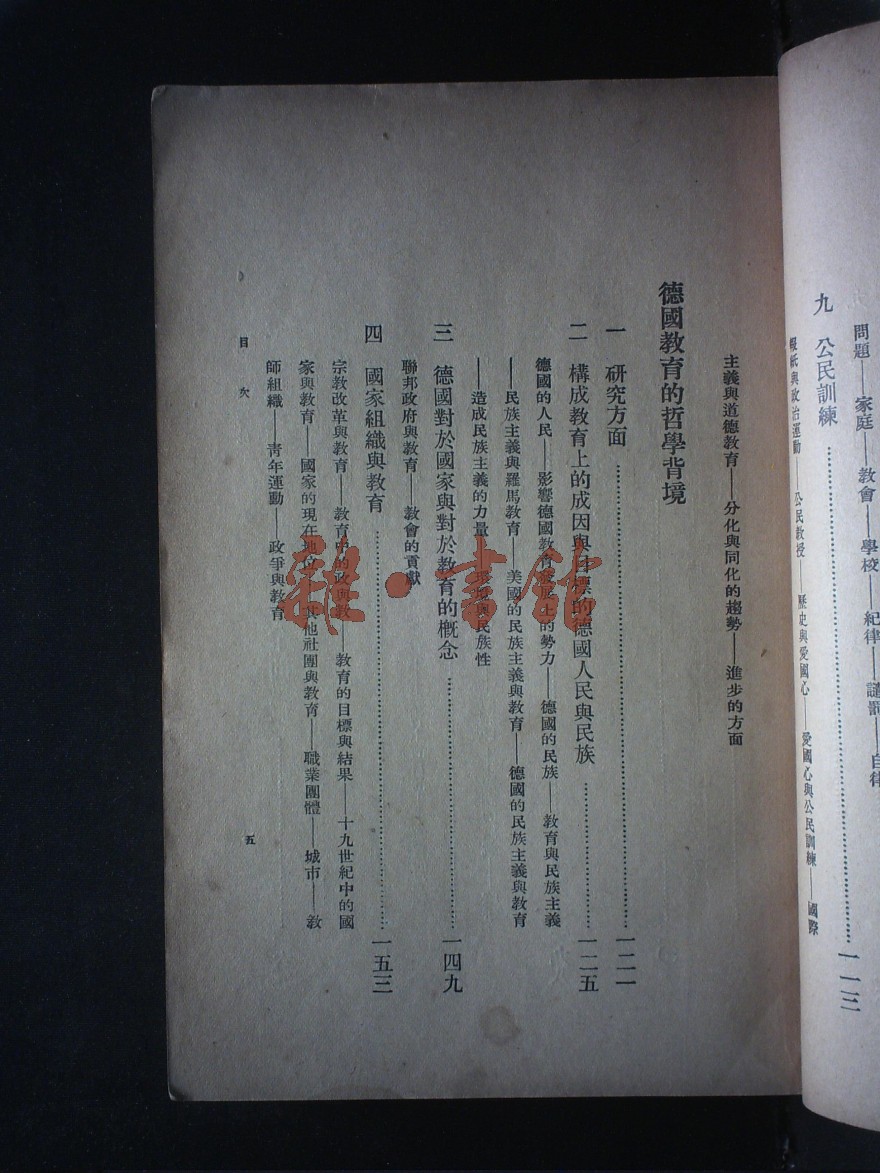 九 公民訓練……一一三
問題——家庭——教會——學校——紀律——自律
報紙與政治運動——公民教授——歷史與愛國心——愛國心與公民訓練——國際
主義與道德教育——分化與同化的趨勢——進步的方面
德國教育的哲學背境
一 研究方面……一二一
二 構成教育上的成因與目標的德國人民與民族……一二五
德國的人民——影響德國教育發展上的勢力——德國的民族——教育與民族主義
——民族主義與羅馬教育——美國的民族主義與教育——德國的民族主義與教育
——造成民族主義的力量——環境與民族性
三 德國對於國家與對於教育的概念……一四九
聯邦政府與教育——教會的貢獻
四 國家組織與教育……一五三
宗教改革與教育——教育中的政與教——教育的目標與結果——十九世紀中的國
家與教育——國家的現在地位——其他社團與教育——職業團體——城市——教
師組織——青年運動——政爭與教育
目次
五
雜·書館